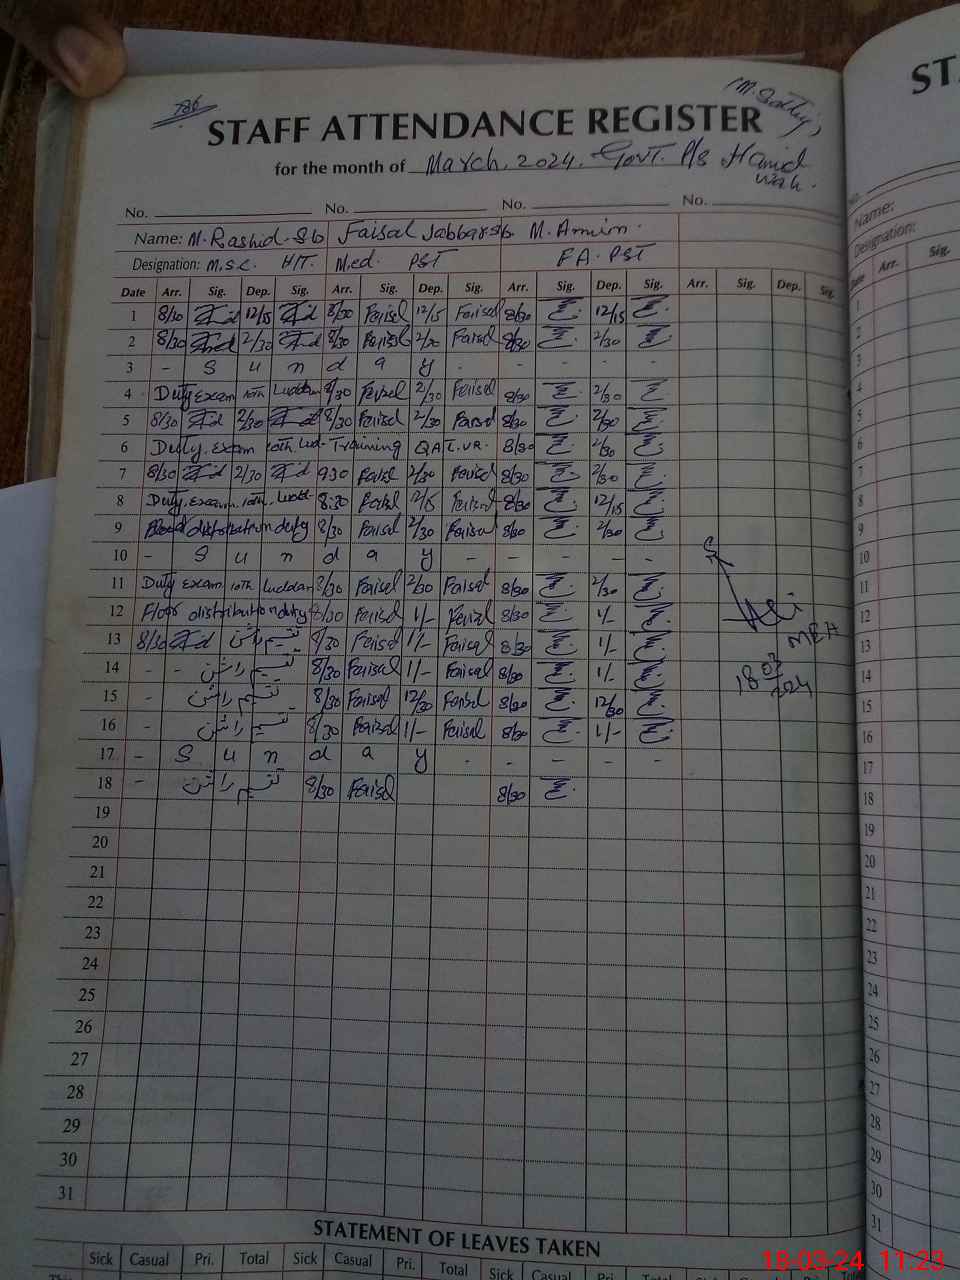 786
STAFF ATTENDANCE REGISTER
for the month of March, 2024. Govt. P/s Hamid
wah.
No. No. No. No.
Name: M. Rashid Sb Faisal Jabbar sb. M. Amin.
Designation: M.S.C. HIT. M.ed. PST FA. PST
Date Arr. Sig. Dep. Sig. Arr. Sig. Dep. Sig. Arr. Sig. Dep. Sig. Arr. Sig. Dep. Sig.
1 8/30 12/15 8/30 Faisal 12/15 Faisal 8/30 12/15
2 8/30 2/30 8/30 Faisal 2/30 Faisal 8/30 2/30
3 - S u n d a y - - - - -
4 Duty Exam 10th Luddan 8/30 Faisal 2/30 Faisal 8/30 2/30
5 8/30 2/30 8/30 Faisal 2/30 Faisal 8/30 2/30
6 Duty. Exam 10th. Lud- Training QAT. VR. 8/30 2/30
7 8/30 2/30 930 Faisal 2/30 Faisal 8/30 2/30
8 Duty. Exam. 10th. Ludd- 8:30 Faisal 12/15 Faisal 8/30 12/15
9 distribution duty 8/30 Faisal 2/30 Faisal 8/30 2/30
10 - S u n d a y - - - - -
11 Duty Exam 10th Luddan 8/30 Faisal 2/30 Faisal 8/30 2/30
12 Floor distribution duty 8/30 Faisal 1/- Faisal 8/30 1/-
13 8/30 تقسیم راشن 8/30 Faisal 1/- Faisal 8/30 1/-
14 - - تقسیم راشن 8/30 Faisal 1/- Faisal 8/30 1/-
15 - تقسیم راشن 8/30 Faisal 12/30 Faisal 8/30 12/30
16 - تقسیم راشن 8/30 Faisal 1/- Faisal 8/30 1/-
17 - S u n d a y - - - - -
18 - تقسیم راشن 8/30 Faisal 8/30
19
20
21
22
23
24
25
26
27
28
29
30
31
MEA
18 03
2024
STATEMENT OF LEAVES TAKEN
Sick Casual Pri. Total Sick Casual Pri. Total Sick Casual Pri. Total Sick Casual
ST
Name:
Designation:
Date Arr. Sig.
1
2
3
4
5
6
7
8
9
10
11
12
13
14
15
16
17
18
19
20
21
22
23
24
25
26
27
28
29
30
31
18-03-24 11:23